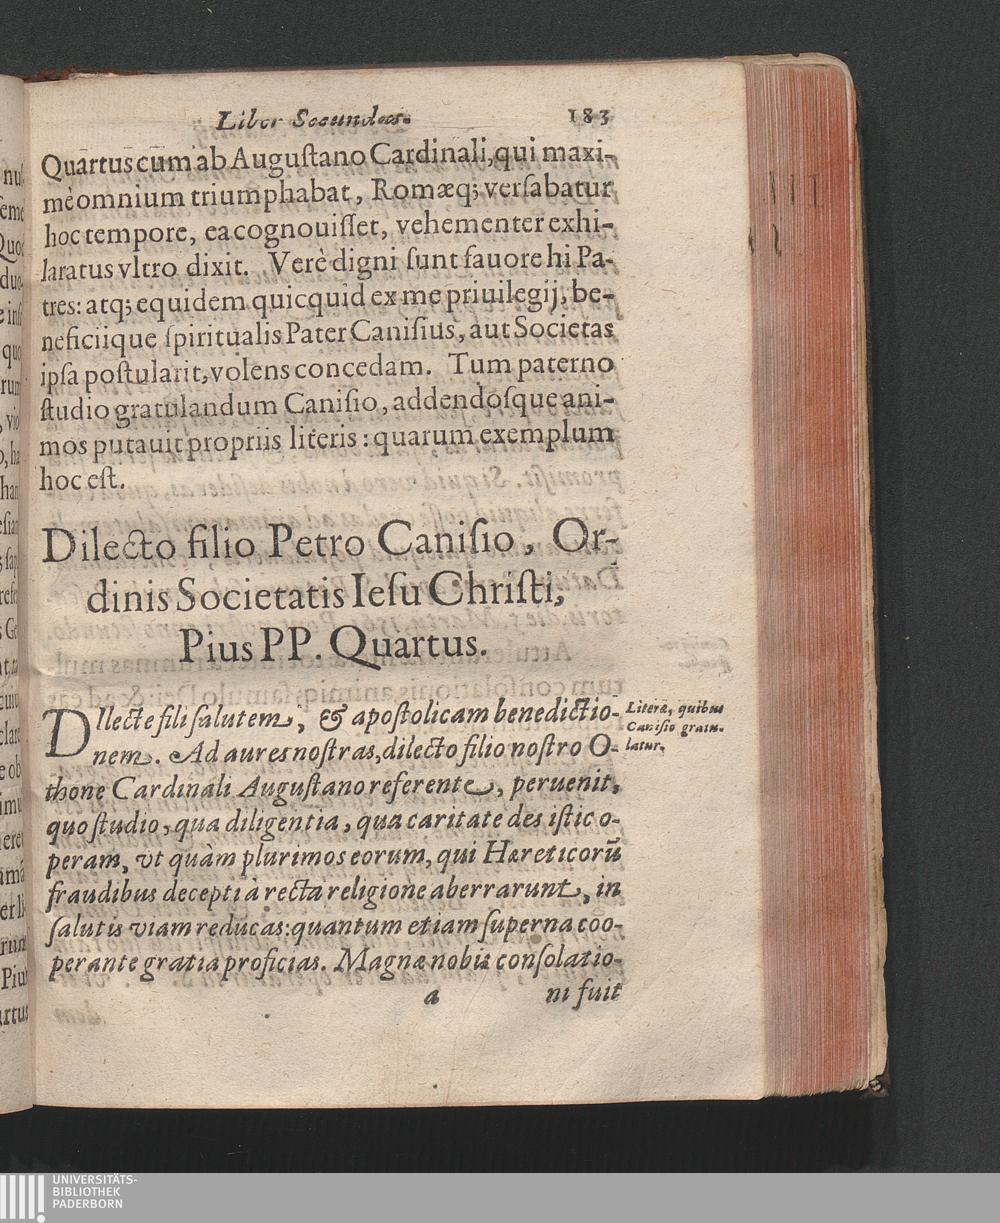 Liber Secundus. 183
Quartus cum ab Auguſtano Cardinali, qui maxi-
mè omnium triumphabat, Romæq; verſabatur
hoc tempore, ea cognouiſſet, vehementer exhi-
laratus vltro dixit. Verè digni ſunt fauore hi Pa-
tres: atq; equidem quicquid ex me priuilegij, be-
neficiique ſpiritualis Pater Caniſius, aut Societas
ipſa poſtularit, volens concedam. Tum paterno
ſtudio gratulandum Caniſio, addendoſque ani-
mos putauit propriis literis: quarum exemplum
hoc eſt.
Dilecto filio Petro Caniſio, Or-
dinis Societatis Ieſu Chriſti,
Pius PP. Quartus.
DIlecte fili ſalutem, & apoſtolicam benedictio-
nem. Ad aures noſtras, dilecto filio noſtro O-
thone Cardinali Auguſtano referente, peruenit,
quo ſtudio, qua diligentia, qua caritate des iſtic o-
peram, vt quàm plurimos eorum, qui Hæreticorū
fraudibus decepti à recta religione aberrarunt, in
ſalutis viam reducas: quantum etiam ſuperna coo-
perante gratia proficias. Magnæ nobis conſolatio-
a ni fuit
Literæ, quibus
Caniſio gratu-
latur.
UNIVERSITÄTS-
BIBLIOTHEK
PADERBORN